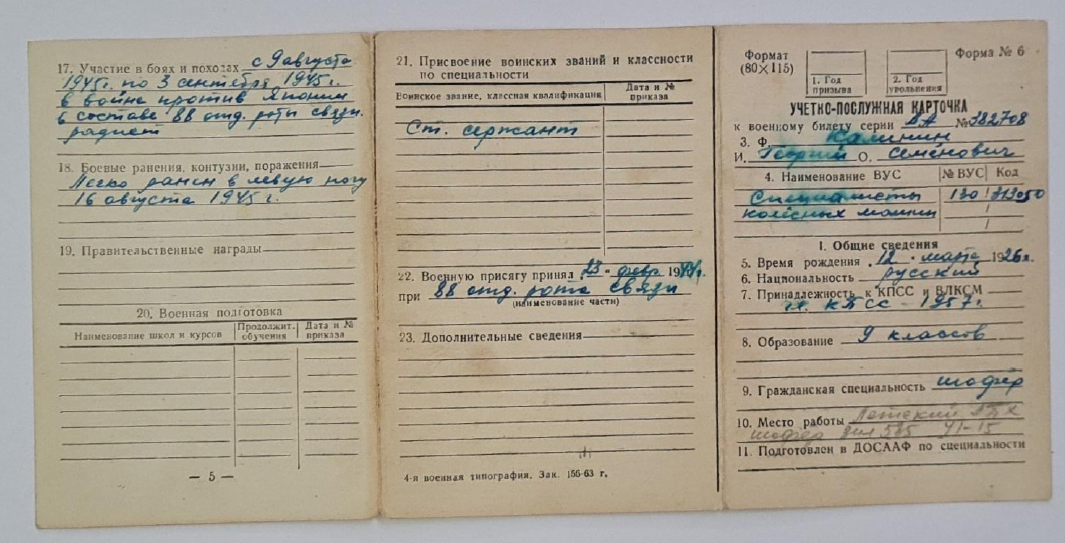 17. Участие в боях и походах с 9 августа
1945 г. по 3 сентября 1945 г.
в войне против Японии
в составе 88 отд. роты связи
радист
18. Боевые ранения, контузии, поражения
Легко ранен в левую ногу
16 августа 1945 г.
19. Правительственные награды
20. Военная подготовка
Наименование школ и курсов
Продолжит. обучения
Дата и № приказа
— 5 —
21. Присвоение воинских званий и классности
по специальности
Воинское звание, классная квалификация
Дата и № приказа
Ст. сержант
22. Военную присягу принял 23 февр. 1944 г.
при 88 отд. рота связи
(наименование части)
23. Дополнительные сведения
4-я военная типография. Зак. 156-63 г.
Формат
(80×115)
1. Год
призыва
2. Год
увольнения
Форма № 6
УЧЕТНО-ПОСЛУЖНАЯ КАРТОЧКА
к военному билету серии № 382708
3. Ф. Калинин
И. Георгий О. Семёнович
4. Наименование ВУС
№ ВУС
Код
Специалисты 130
колёсных машин
I. Общие сведения
5. Время рождения 12 марта 1926 г.
6. Национальность русский
7. Принадлежность к КПСС и ВЛКСМ
чл. КПСС 1957 г.
8. Образование 9 классов
9. Гражданская специальность шофёр
10. Место работы
шофёр
11. Подготовлен в ДОСААФ по специальности